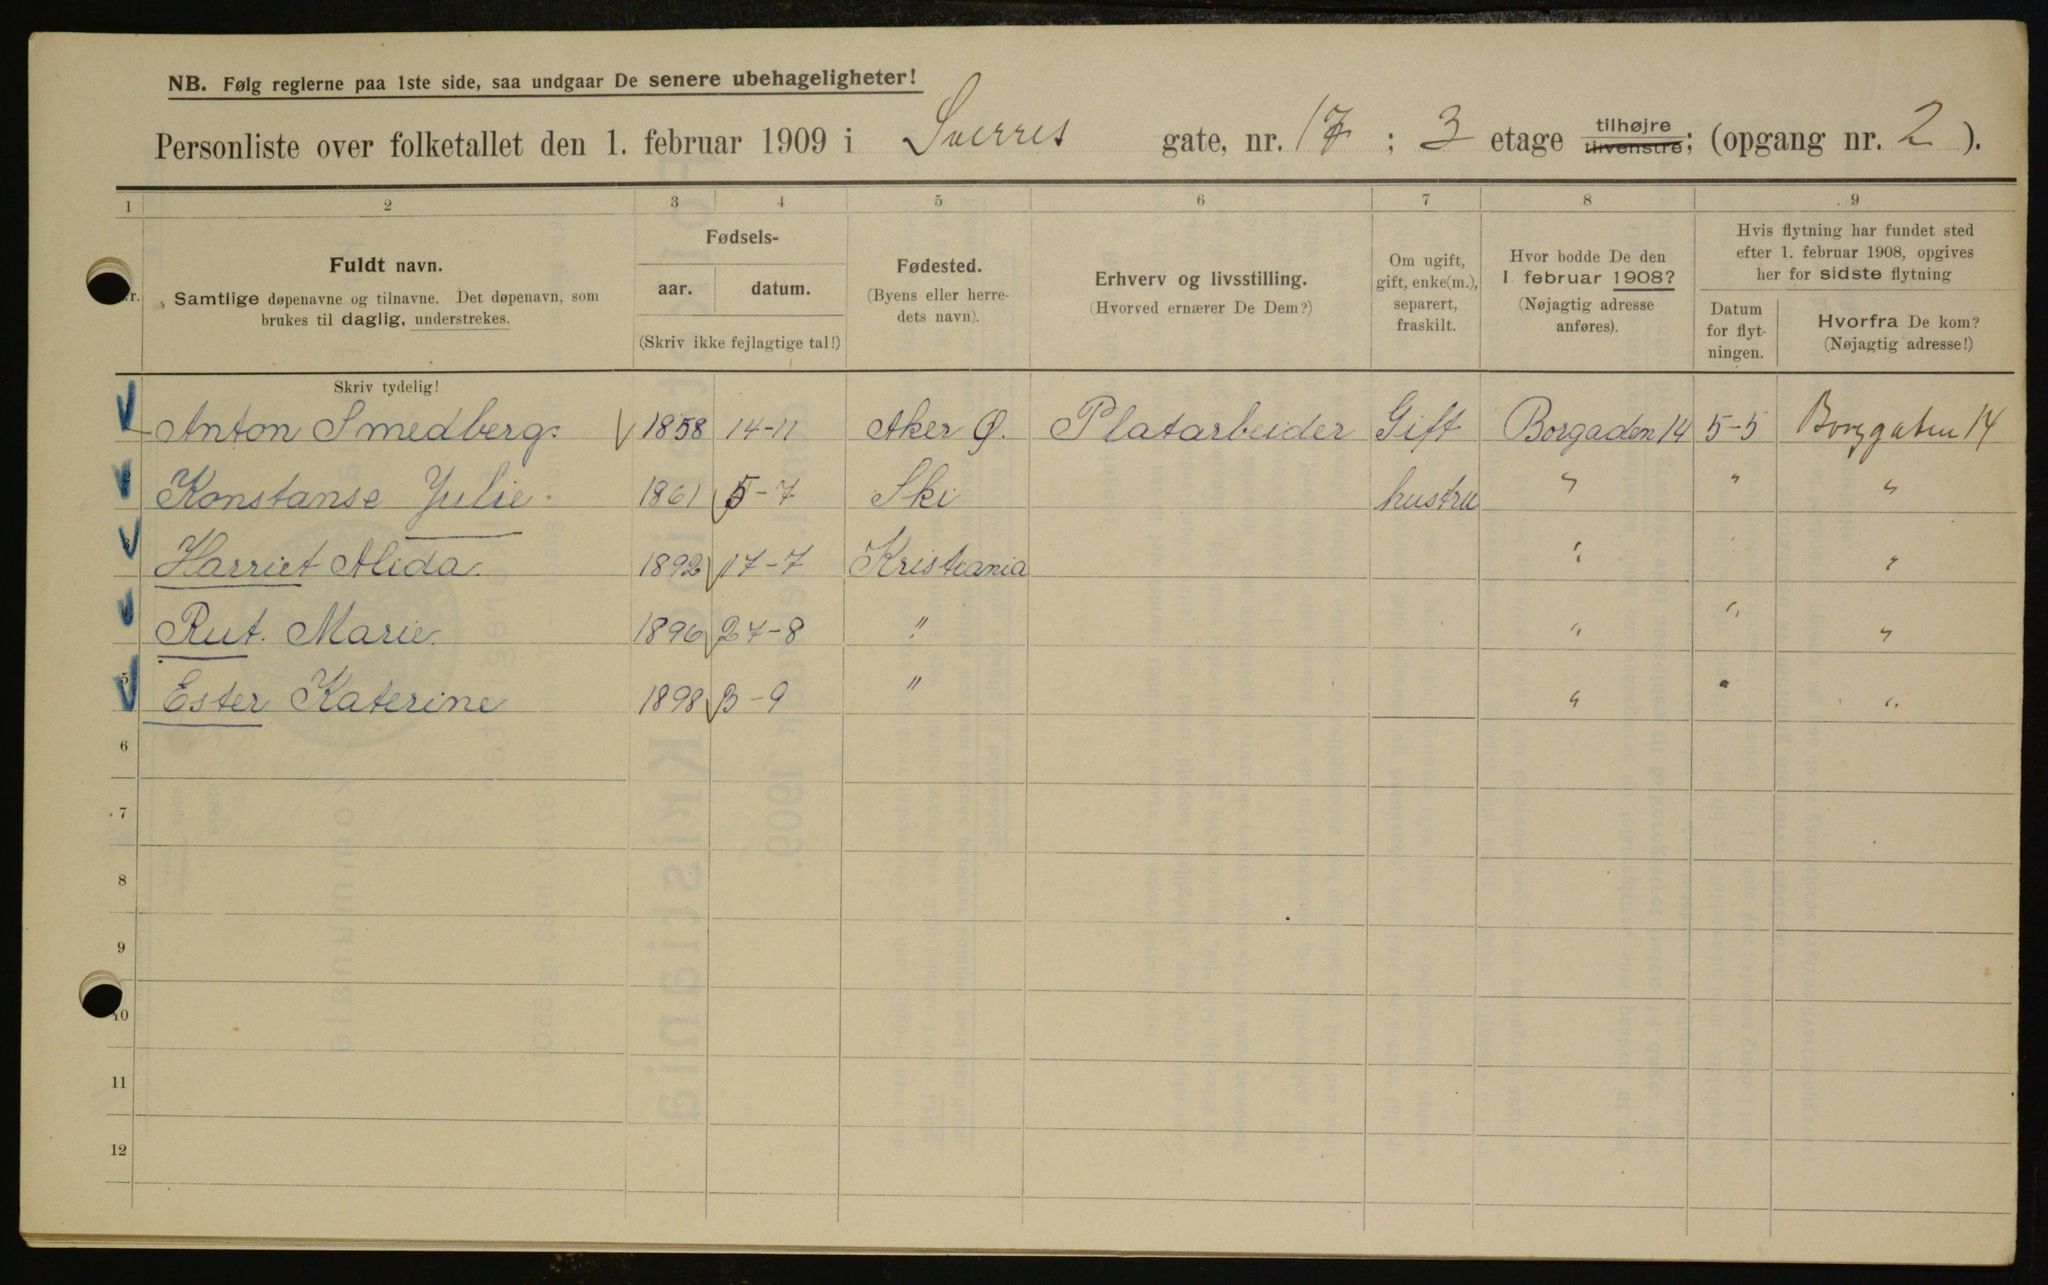 NB. Følg reglerne paa 1ste side, saa undgaar De senere ubehageligheter!
Personliste over folketallet den 1. februar 1909 i Sverres gate, nr. 17; 3 etage tilhøjre tilvenstre; (opgang nr. 2).
1 2 3 4 5 6 7 8 9
Nr.
Fuldt navn.
Samtlige døpenavne og tilnavne. Det døpenavn, som
brukes til daglig, understrekes.
Fødsels-
aar. datum.
(Skriv ikke fejlagtige tal!)
Fødested.
(Byens eller herre-
dets navn).
Erhverv og livsstilling.
(Hvorved ernærer De Dem?)
Om ugift,
gift, enke(m.),
separert,
fraskilt.
Hvor bodde De den
1. februar 1908?
(Nøjagtig adresse
anføres).
Hvis flytning har fundet sted
efter 1. februar 1908, opgives
her for sidste flytning
Datum
for flyt-
ningen.
Hvorfra De kom?
(Nøjagtig adresse!)
Skriv tydelig!
Anton Smedberg. 1858 14-11 Aker Ø. Platarbeider Gift Borgaden 14 5-5 Borggaten 14
2 Konstanse Julie 1861 5-7 Ski hustru " " "
3 Harriet Alida. 1892 17-7 Kristiania " "
4 Rut. Marie. 1896 27-8 " " " "
5 Ester Katerine 1898 3-9 " " " "
6
7
8
9
10
11
12